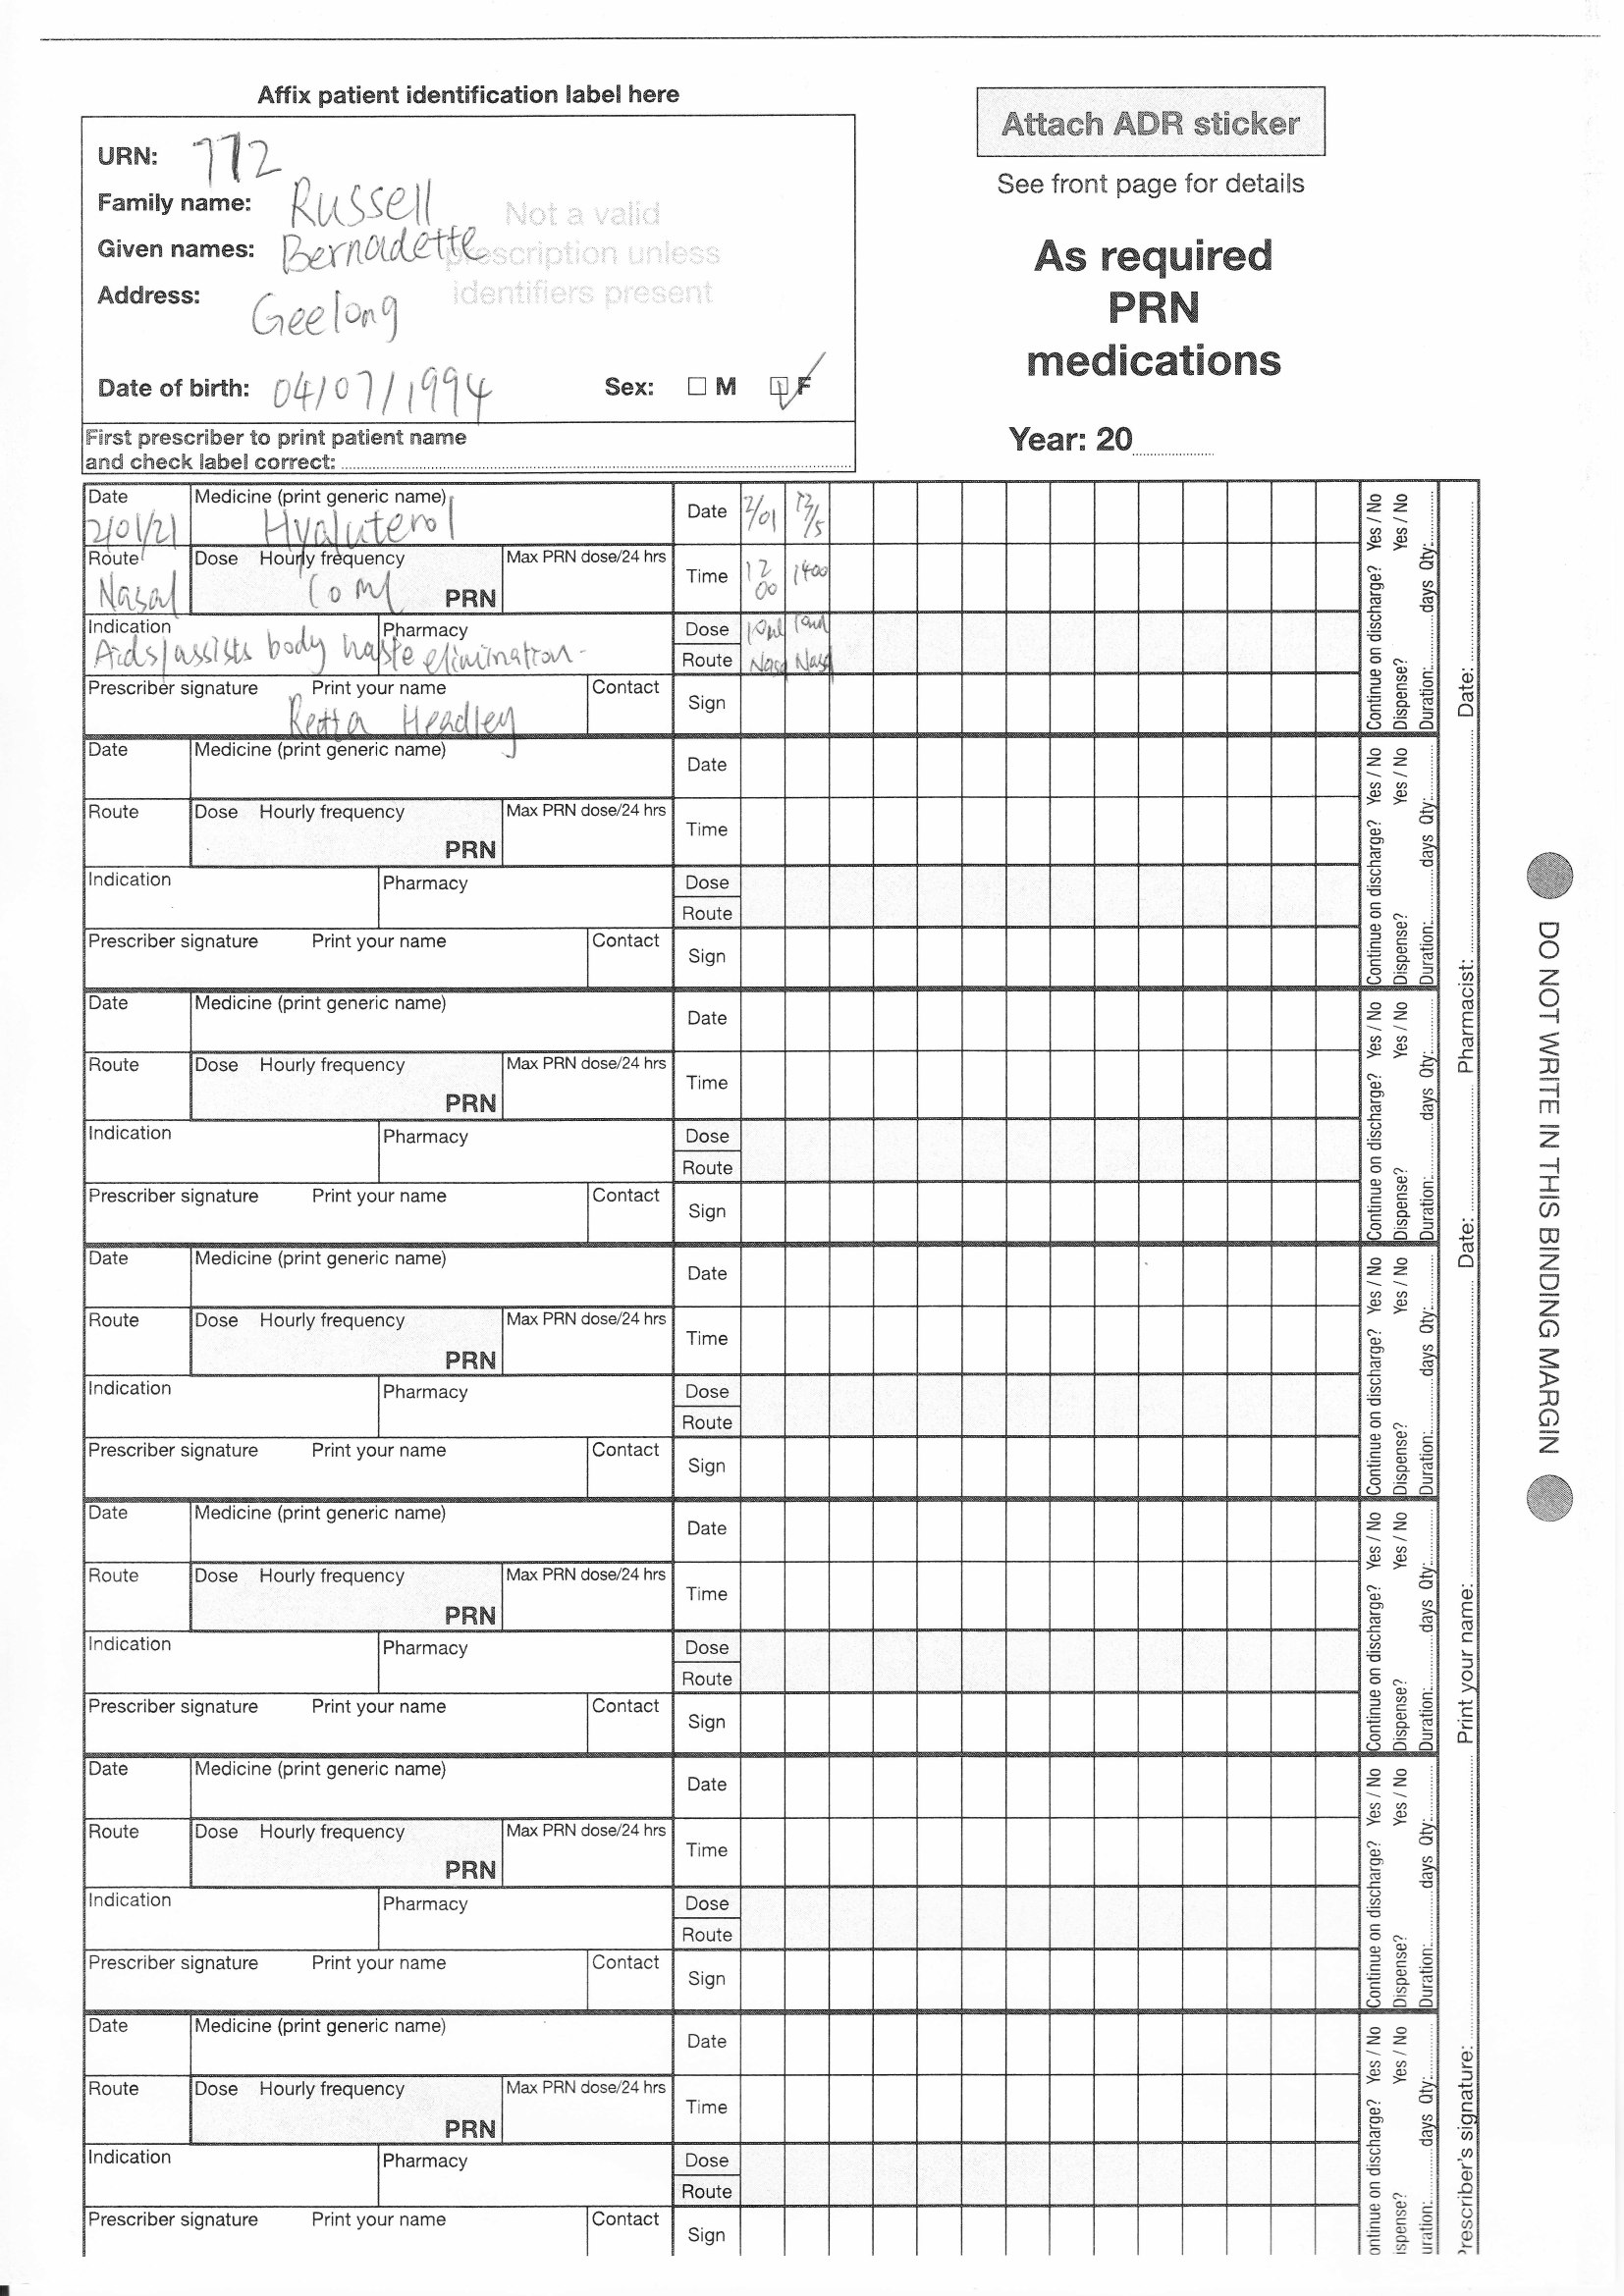 Affix patient identification label here
URN: 772
Family name: Russell
Given names: Bernadette
Address: Geelong
Not a valid
prescription unless
identifiers present
Date of birth: 04/07/1994 Sex: M F
First prescriber to print patient name
and check label correct:
Attach ADR sticker
See front page for details
As required
PRN
medications
Year: 20
Date Medicine (print generic name) Date 2/01
2/01/21 Hyaluterol
Route Dose Hourly frequency Max PRN dose/24 hrs Time 12 00 1400
Nasal 10 ml PRN
Indication Pharmacy Dose 10ml 10ml
Aids/assists body waste elimination. Route Nasal Nasal
Prescriber signature Print your name Contact Sign
Retta Headley
Continue on discharge? Yes / No
Dispense? Yes / No
Duration: days Qty:
Date Medicine (print generic name) Date
Route Dose Hourly frequency Max PRN dose/24 hrs Time
PRN
Indication Pharmacy Dose
Route
Prescriber signature Print your name Contact Sign
Continue on discharge? Yes / No
Dispense? Yes / No
Duration: days Qty:
Date Medicine (print generic name) Date
Route Dose Hourly frequency Max PRN dose/24 hrs Time
PRN
Indication Pharmacy Dose
Route
Prescriber signature Print your name Contact Sign
Continue on discharge? Yes / No
Dispense? Yes / No
Duration: days Qty:
Date Medicine (print generic name) Date
Route Dose Hourly frequency Max PRN dose/24 hrs Time
PRN
Indication Pharmacy Dose
Route
Prescriber signature Print your name Contact Sign
Continue on discharge? Yes / No
Dispense? Yes / No
Duration: days Qty:
Date Medicine (print generic name) Date
Route Dose Hourly frequency Max PRN dose/24 hrs Time
PRN
Indication Pharmacy Dose
Route
Prescriber signature Print your name Contact Sign
Continue on discharge? Yes / No
Dispense? Yes / No
Duration: days Qty:
Date Medicine (print generic name) Date
Route Dose Hourly frequency Max PRN dose/24 hrs Time
PRN
Indication Pharmacy Dose
Route
Prescriber signature Print your name Contact Sign
Continue on discharge? Yes / No
Dispense? Yes / No
Duration: days Qty:
Date Medicine (print generic name) Date
Route Dose Hourly frequency Max PRN dose/24 hrs Time
PRN
Indication Pharmacy Dose
Route
Prescriber signature Print your name Contact Sign
ontinue on discharge? Yes / No
ispense? Yes / No
uration: days Qty:
rescriber's signature: Print your name: Date: Pharmacist: Date:
DO NOT WRITE IN THIS BINDING MARGIN